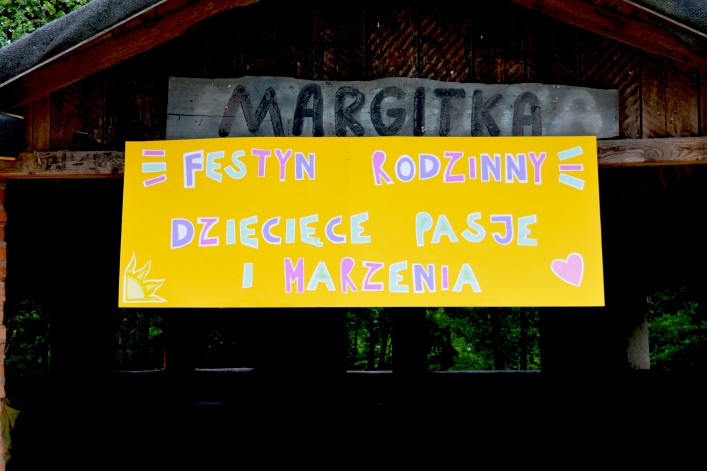 MARGITKA
FESTYN RODZINNY
DZIECIĘCE PASJE
I MARZENIA